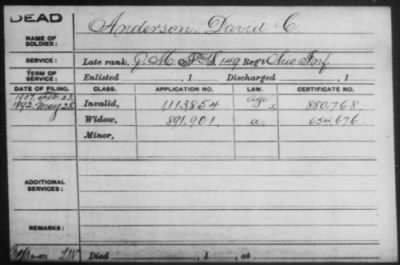 DEAD
NAME OF SOLDIER: Anderson, David C.
SERVICE: Late rank, Q. M. 149 Reg't Ohio Inf.
TERM OF SERVICE: Enlisted , 1 Discharged , 1
DATE OF FILING. CLASS. APPLICATION NO. LAW. CERTIFICATE NO.
Invalid, 1,113,854 age 880,768
1892 May 28 Widow, 891,901 a. 654,676
Minor,
ADDITIONAL SERVICES:
REMARKS:
Died , 1 , at